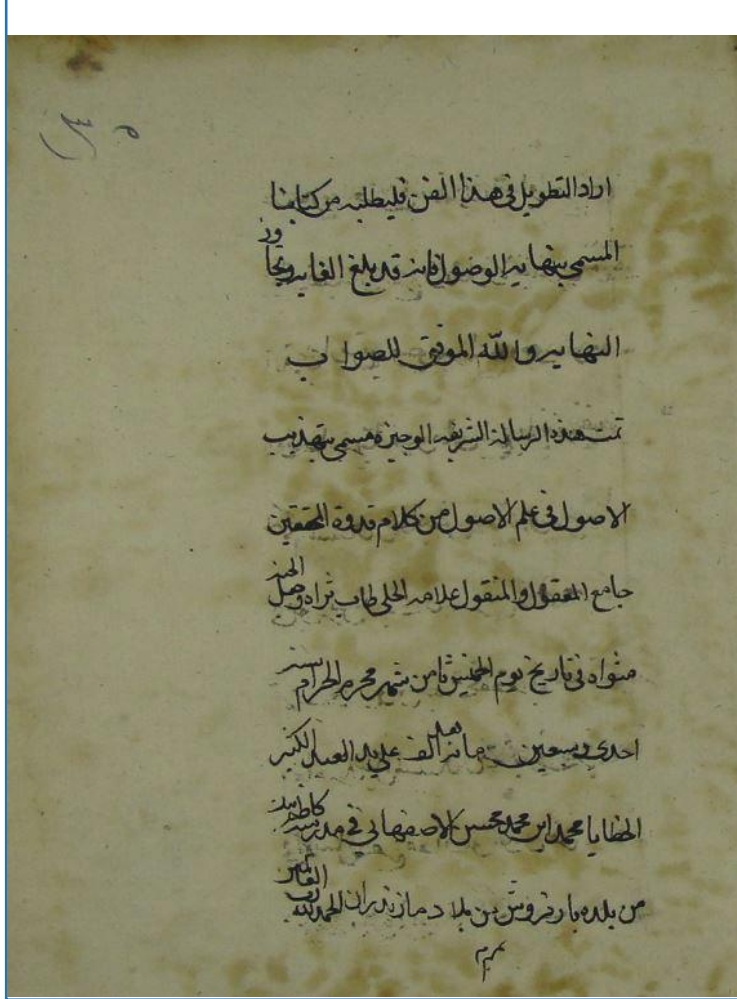 اراد التطويل فى هذا الفن فليطلبه من كتابنا
المسمى بنهايه الوصول فانه قد بلغ الغايه وتجاوز
النهايه والله الموفق للصواب
تمت هذه الرسالة الشريفه الوجيزه مسمى بتهذيب
الاصول فى علم الاصول من كلام قدوة المحققين
جامع المعقول والمنقول علامه الحلى طاب ثراه وجعل الجنه
مثواه فى تاريخ يوم ثامن شهر محرم الحرام سنه
احدى مائه بعد الف على يد العبد الكثير
الخطايا محمد ابن محمد محسن الاصفهانى فى مدرسه
من بلده بارفروش من بلاد مازندران الحمد لله رب العالمين